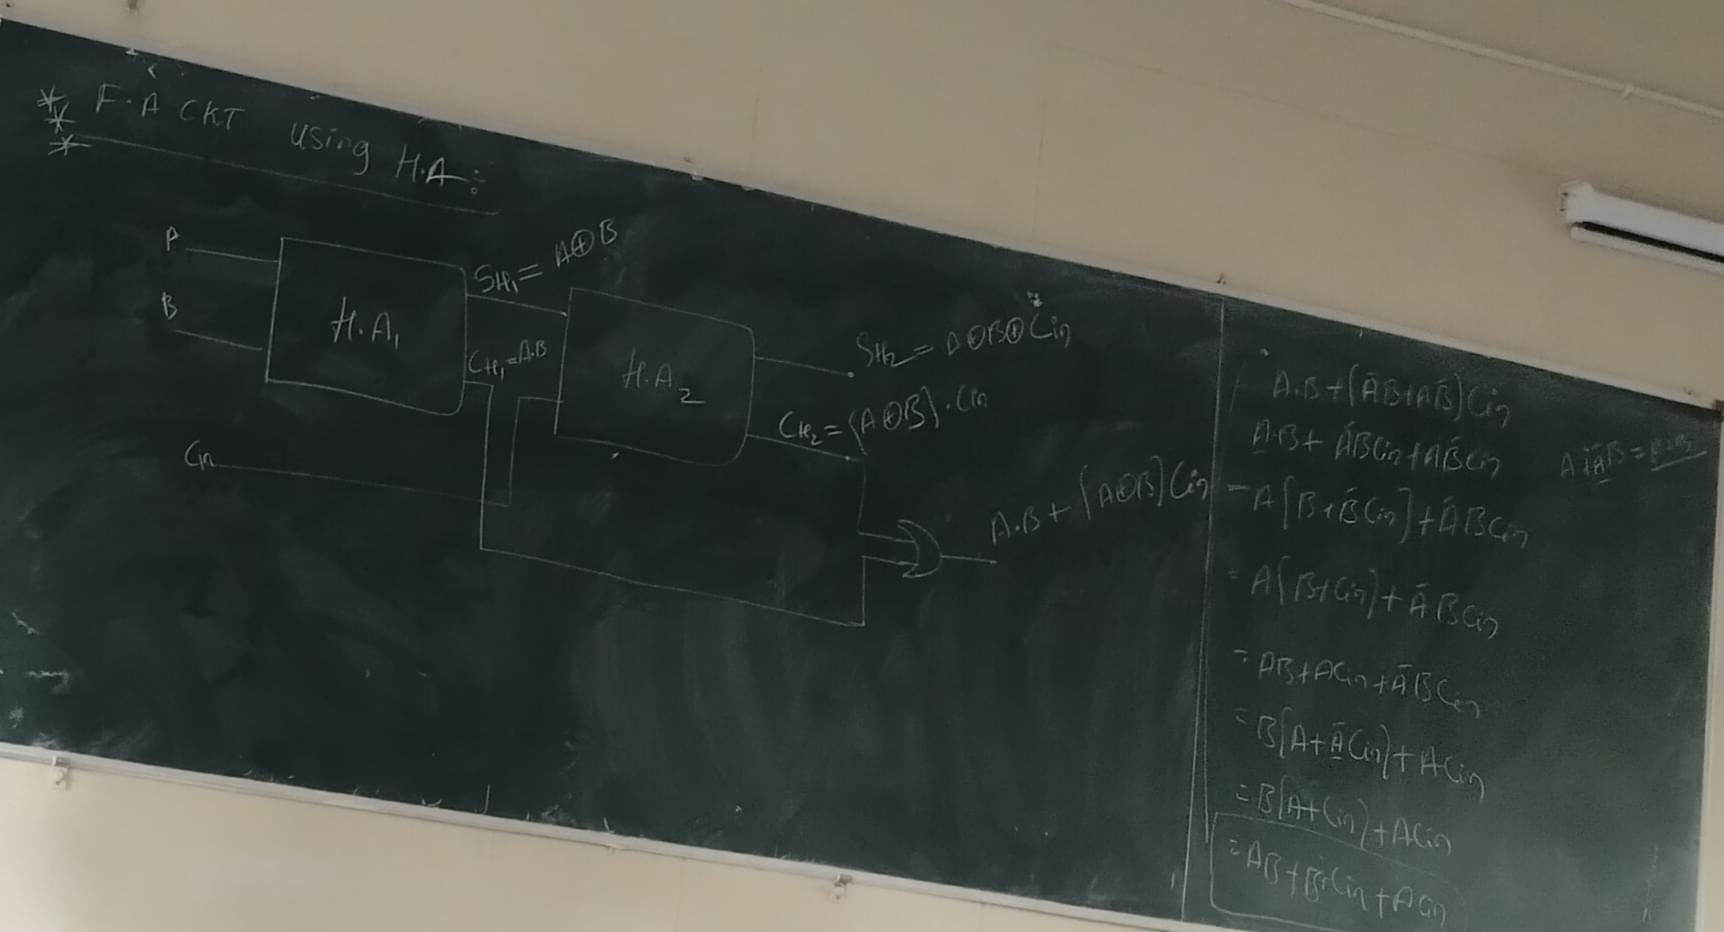 F.A CKT using H.A:
A
B
H.A₁
S_H₁ = A⊕B
C_H₁ = A.B
H.A₂
Cin
S_H₂ = A⊕B⊕Cin
C_H₂ = (A⊕B).Cin
A.B + (A⊕B)Cin
A.B + (ĀB + AB̄)Cin
A.B + ĀBCin + AB̄Cin
= A[B + B̄Cin] + ĀBCin
= A(B + Cin) + ĀBCin
= AB + ACin + ĀBCin
= B[A + ĀCin] + ACin
= B[A + Cin] + ACin
= AB + BCin + ACin
A + ĀB =